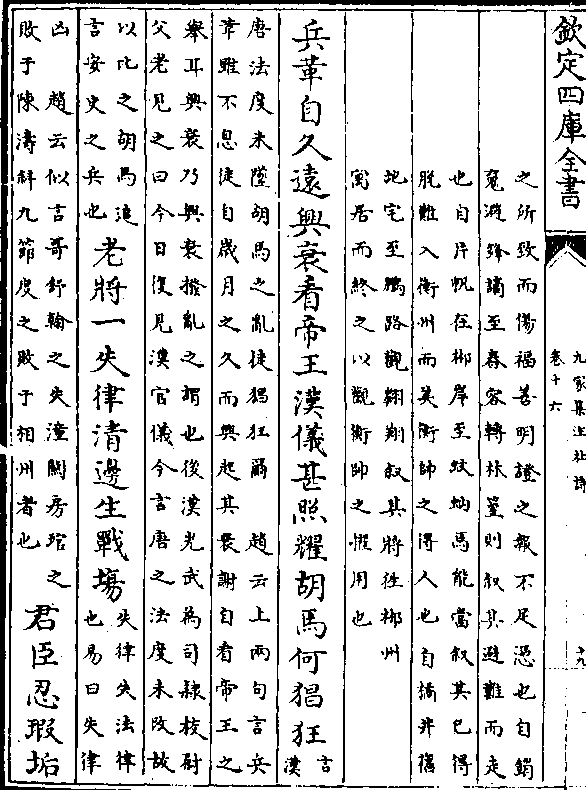 欽定四庫全書
九家集注杜詩
卷十六
十九
之所致而傷福善明證之報不足憑也自銷
冤避鋒鏑至春容轉林篁則叙其避難而走
也自片帆在郴岸至蚊蚋焉能當叙其已得
脱難入衡州而美衡帥之得人也自橘井舊
地宅至鵬路觀翺翔叙其將往郴州
寓居而終之以觀衡帥之擢用也
兵革自久遠興衰看帝王漢儀甚照耀胡馬何猖狂
言
漢
唐法度未墜胡馬之亂徒猖狂爾 趙云上兩句言兵
革雖不息徒自歲月之久而興起其衰謝自看帝王之
舉耳興衰乃興衰撥亂之謂也後漢光武爲司隸校尉
父老見之曰今日復見漢官儀今言唐之法度未改故
以比之胡馬追
言安史之兵也
老將一失律清邊生戰塲
失律失法律
也易曰失律
凶 趙云似言哥舒翰之失潼關房琯之
敗于陳濤斜九節度之敗于相州者也
君臣忍瑕垢